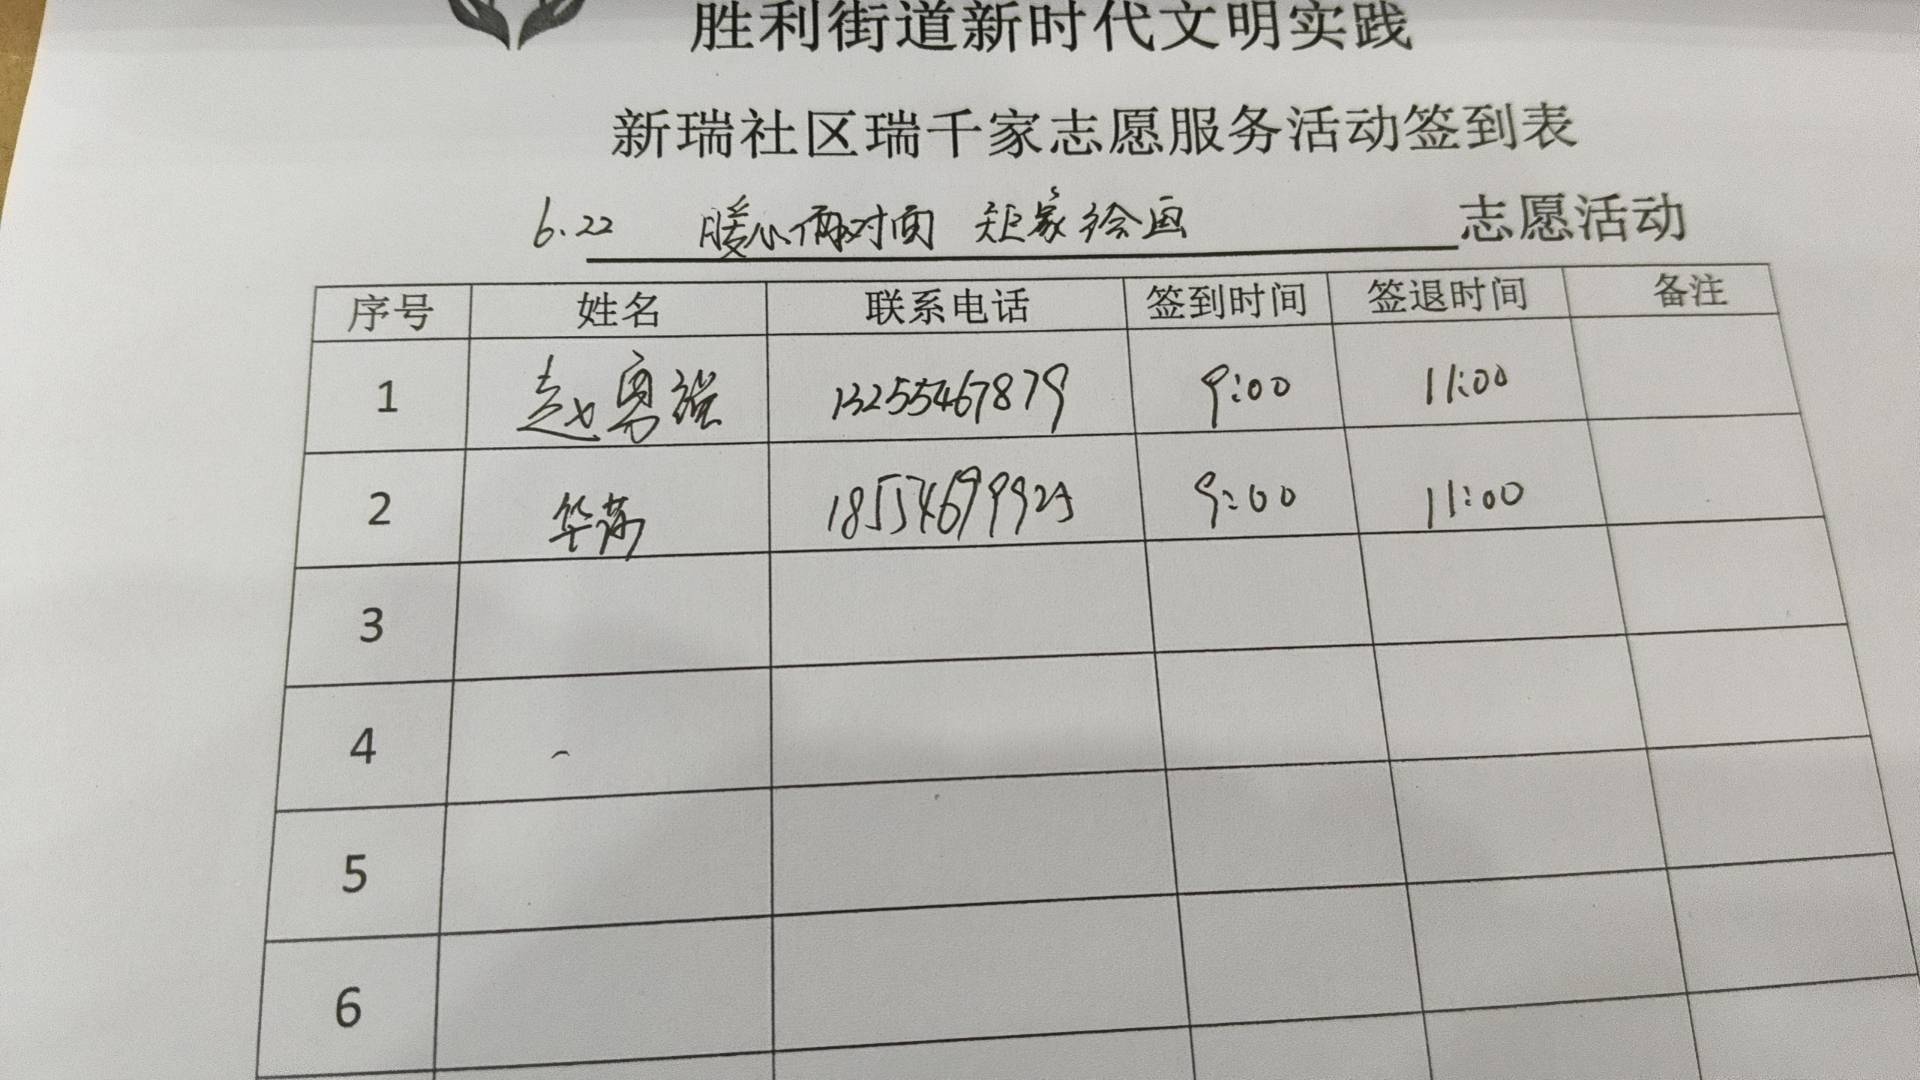 胜利街道新时代文明实践
新瑞社区瑞千家志愿服务活动签到表
6.22 暖心面对面 矩家绘画 志愿活动
序号 姓名 联系电话 签到时间 签退时间 备注
1 赵勇强 13255467879 9:00 11:00
2 华 9:00 11:00
3
4
5
6